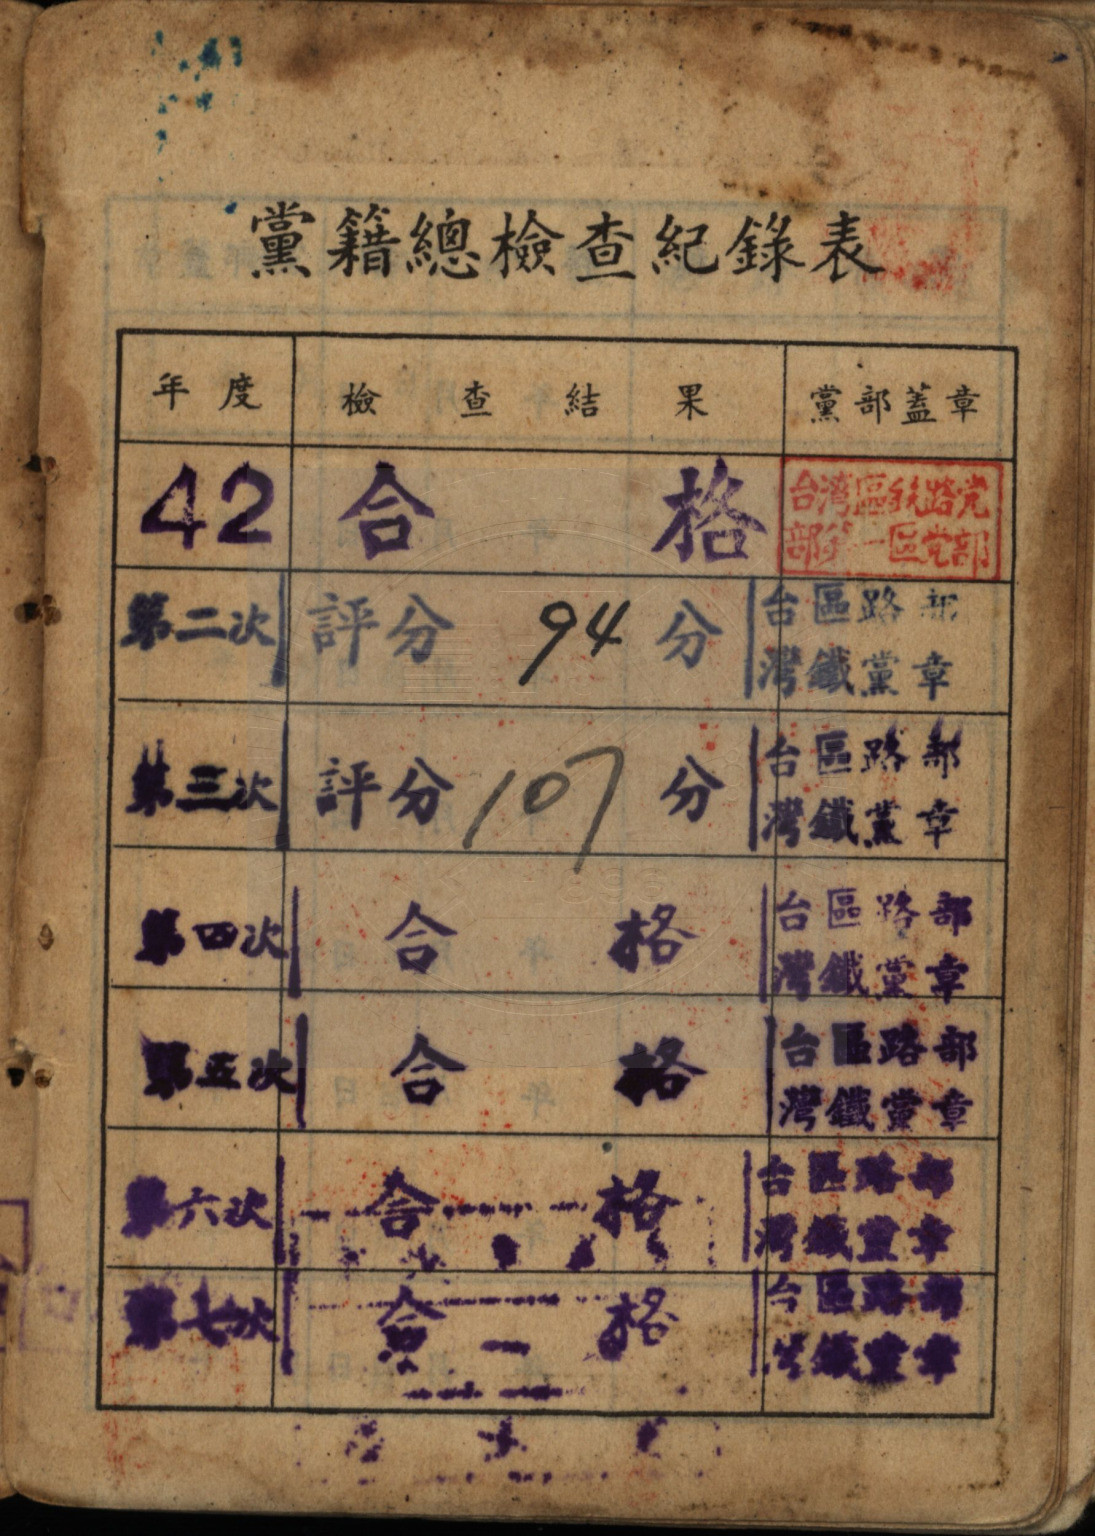 黨籍總檢查紀錄表
年度 檢查結果 黨部蓋章
42 合格 台湾區鉄路党
部第一區党部
第二次 評分 94 分 台區路部
灣鐵黨章
第三次 評分 107 分 台區路部
灣鐵黨章
第四次 合格 台區路部
灣鐵黨章
第五次 合格 台區路部
灣鐵黨章
第六次 合格 台區路部
灣鐵黨章
第七次 合格 台區路部
灣鐵黨章